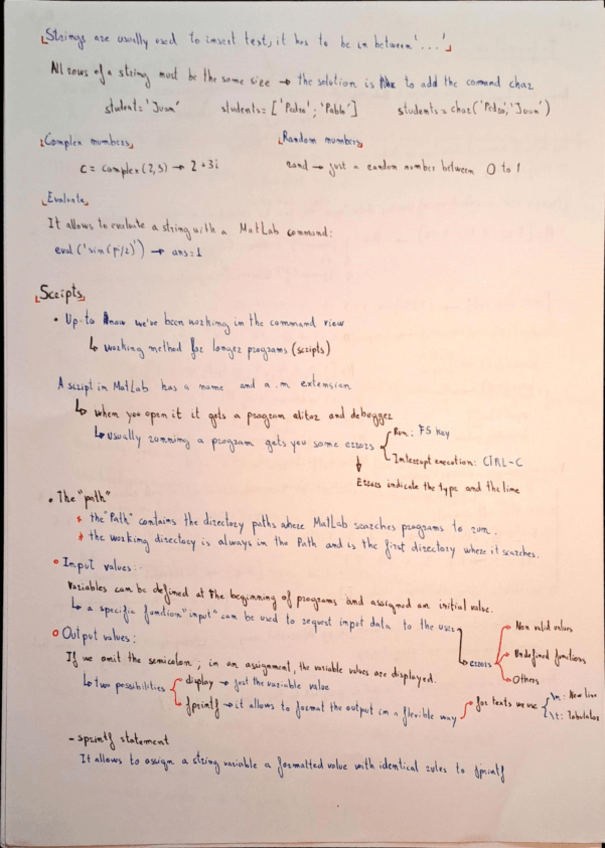 Strings are usually used to insert text, it has to be in between '...'
All rows of a string must be the same size → the solution is to add the comand char
student='Juan' students=['Pedro';'Pablo'] students=char('Pedro','Juan')
Complex numbers Random numbers
c = complex(2,3) → 2+3i rand → just a random number between 0 to 1
Evaluate
It allows to evaluate a string with a MatLab command:
eval('sin(pi/2)') → ans=1
Scripts
• Up to know we've been working in the command view
↳ working method for longer programs (scripts)
A script in MatLab has a name and a .m extension
↳ when you open it it gets a program editor and debegger
↳ usually running a program gets you some errors
Run: F5 key
Interrupt execution: CTRL-C
↓
Errors indicate the type and the line
• The "path"
* the "Path" contains the directory paths where MatLab searches programs to run.
* the working directory is always in the Path and is the first directory where it searches.
• Input values:
Variables can be defined at the beginning of programs and assigned an initial value.
↳ a specific function "input" can be used to request input data to the user
↳ errors
Non valid values
Undefined functions
Others
• Output values:
If we omit the semicolon ; in an assignment, the variable values are displayed.
↳ two possibilities
display → just the variable value
fprintf → it allows to format the output in a flexible way
for texts we use
\n: New line
\t: Tabulator
- sprintf statement
It allows to assign a string variable a formatted value with identical rules to fprintf